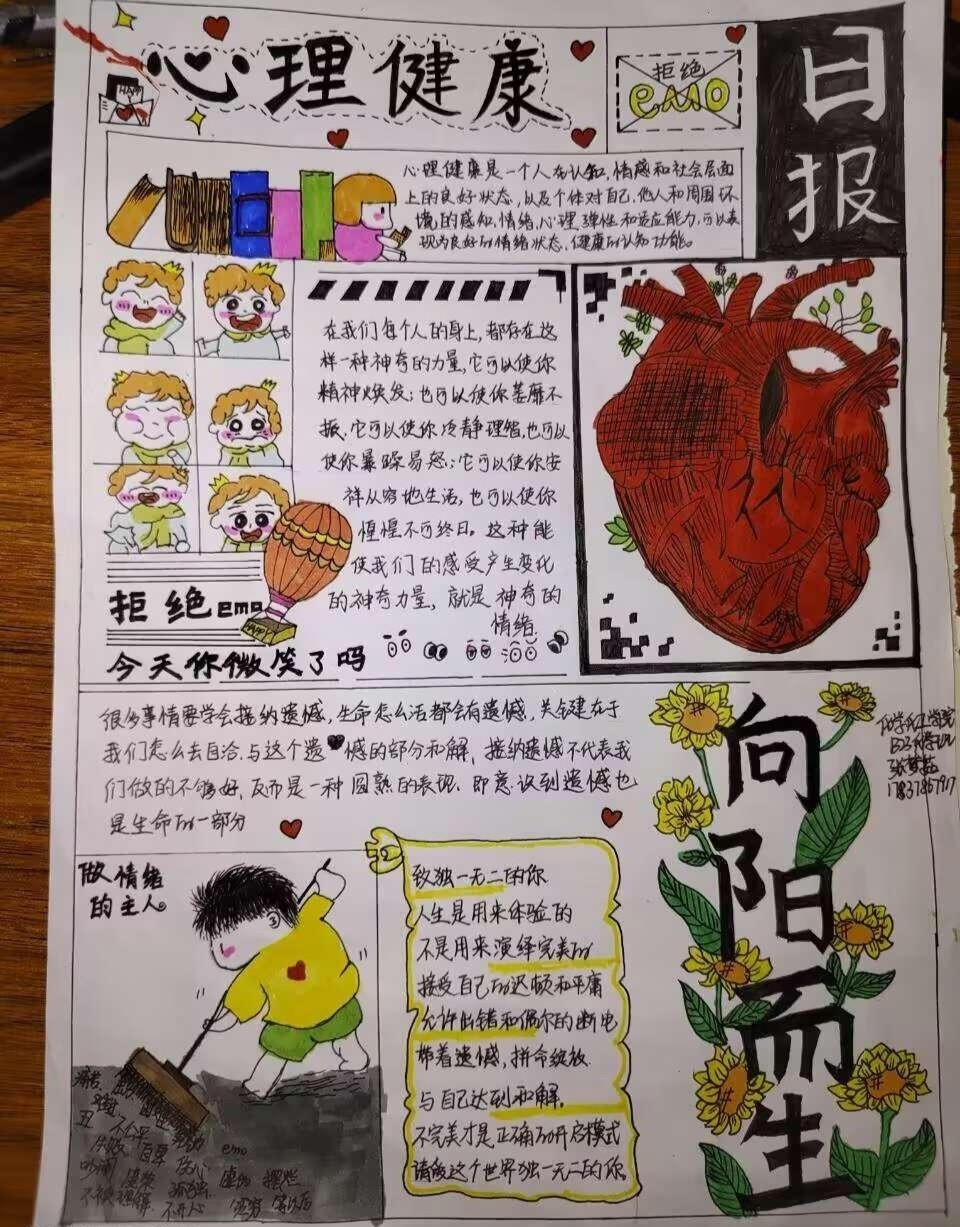 心理健康
拒绝
emo
日报
心理健康是一个人在认知,情感和社会层面
上的良好状态,以及个体对自己,他人和周围环
境的感知,情绪,心理弹性和适应能力,可以表
现为良好的情绪状态,健康的认知功能。
在我们每个人的身上,都存在这
样一种神奇的力量,它可以使你
精神焕发;也可以使你萎靡不
振,它可以使你冷静理智,也可以
使你暴躁易怒;它可以使你安
祥从容地生活,也可以使你
惶惶不可终日。这种能
使我们的感受产生变化
的神奇力量,就是神奇的
情绪
拒绝emo
今天你微笑了吗
很多事情要学会接纳遗憾,生命怎么活都会有遗憾,关键在于
我们怎么去自洽与这个遗憾的部分和解,接纳遗憾不代表我
们做的不够好,反而是一种圆熟的表现.即意识到遗憾也
是生命的一部分
做情绪
的主人。
不公平
自卑
emo
伤心
虚伪
摆烂
孤独
不开心
致独一无二的你
人生是用来体验的
不是用来演绎完美的
接受自己的迟顿和平庸
允许出错和偶尔的断电
带着遗憾,拼命绽放
与自己达到和解。
不完美才是正确的开启模式
请做这个世界独一无二的你
向阳而生
17837867917